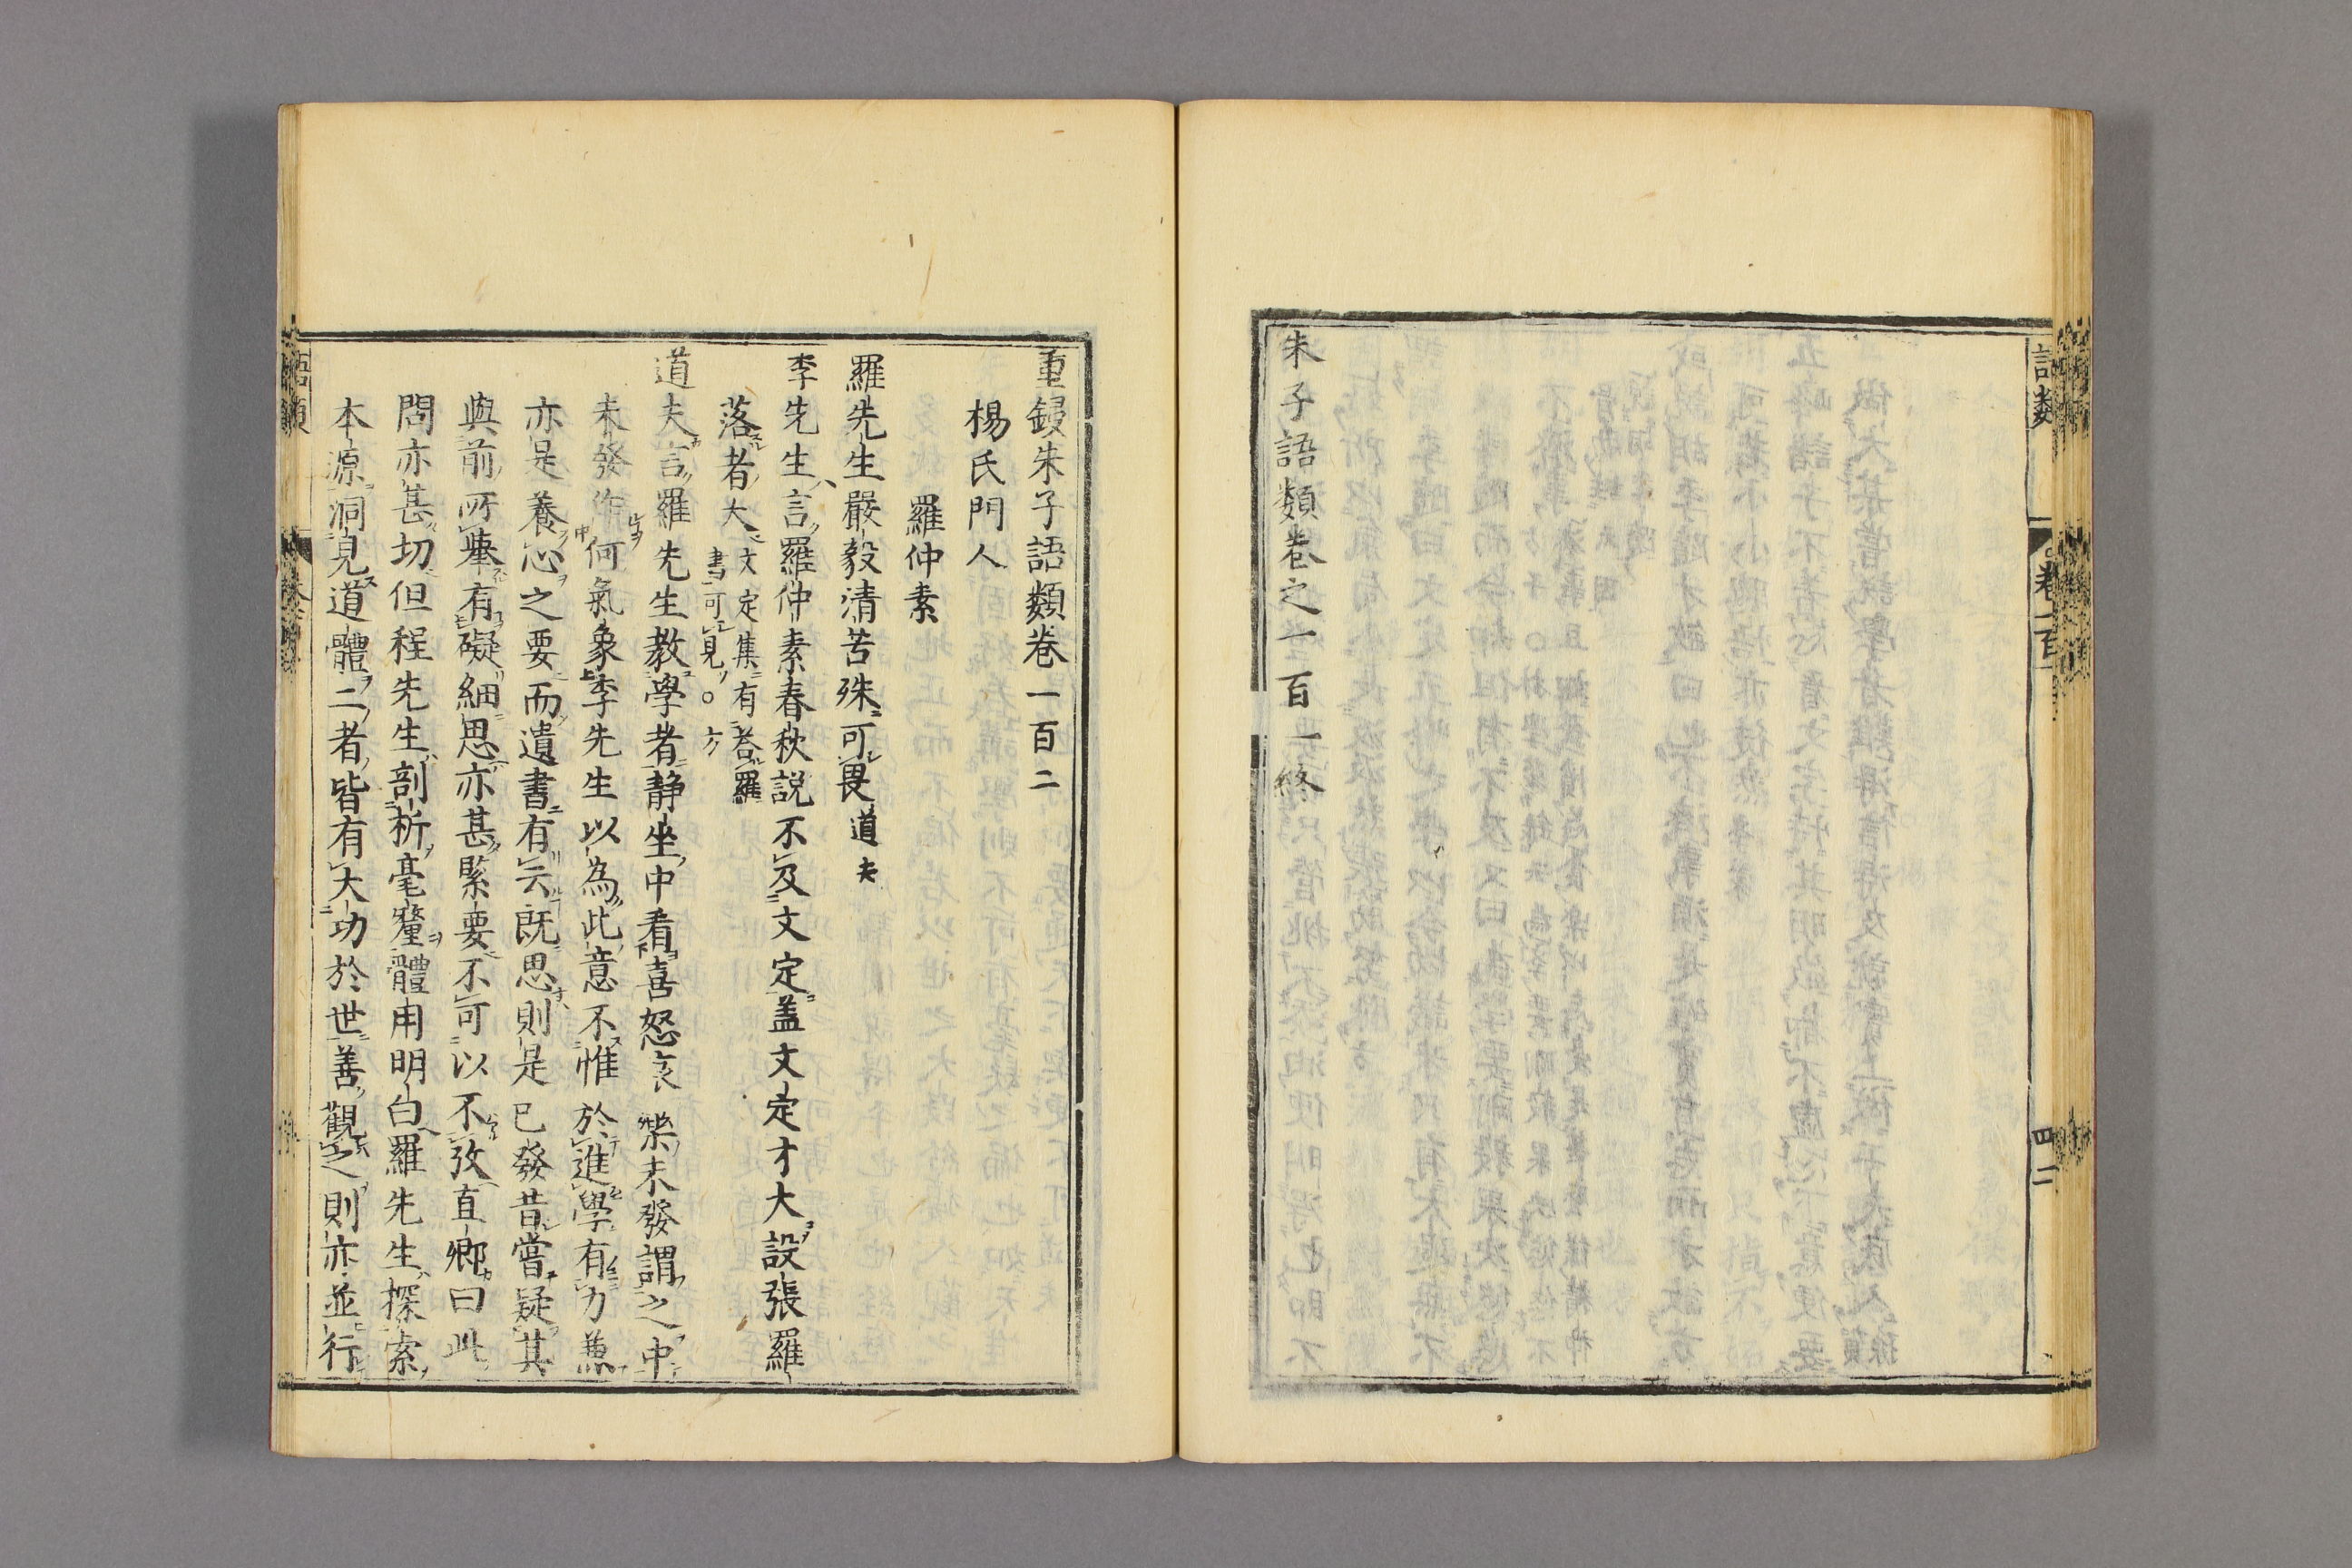 語類
卷一百一
四二
朱子語類卷之一百一終
重鋟朱子語類卷一百二
楊氏門人
羅仲素
羅先生嚴毅清苦殊可畏道夫
李先生言羅仲素春秋説不及文定盖文定才大設張羅
落者大文定集有荅羅
書可見○方
道夫言羅先生教學者静坐中看喜怒哀樂未發謂之中
未發作何氣象李先生以為此意不惟於進學有力兼
亦是養心之要而遺書有云既思則是已發昔嘗疑其
與前所舉有礙細思亦甚緊要不可以不攷直卿曰此
問亦甚切但程先生剖析毫釐體用明白羅先生探索
本源洞見道體二者皆有大功於世善觀之則亦並行
語類